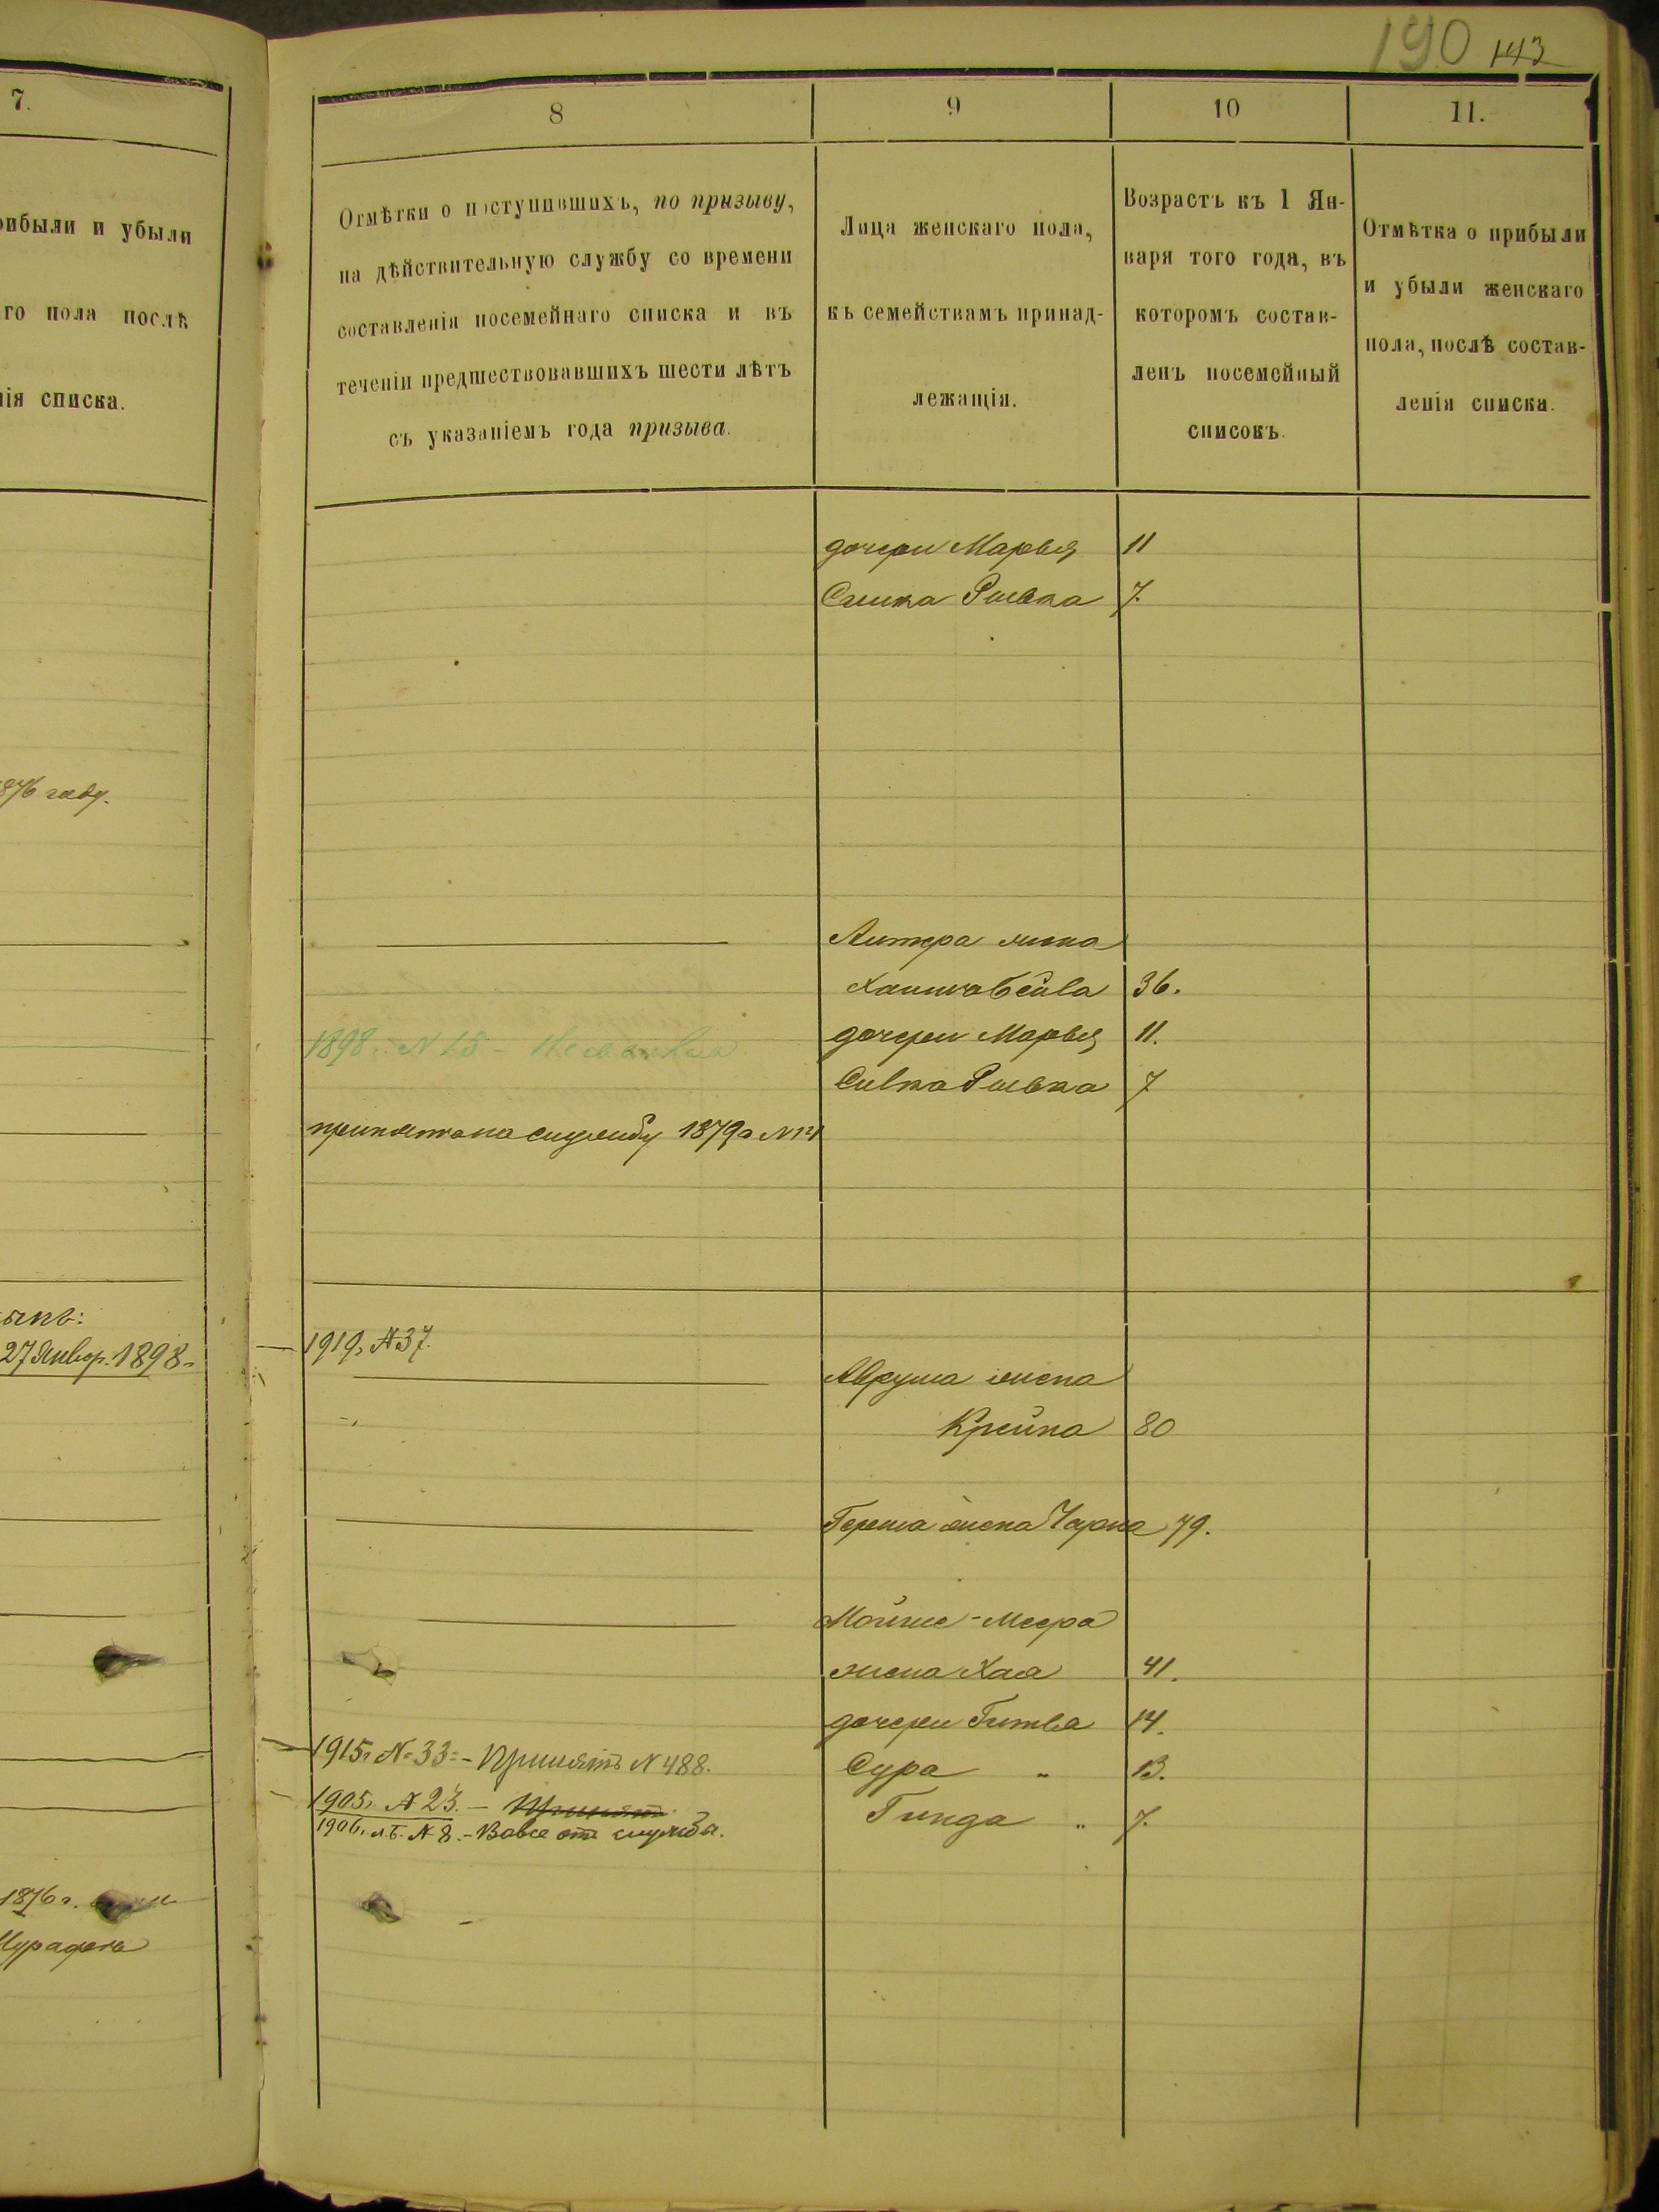 190 143
7.
рибыли и убыли
го пола послѣ
нія списка.
1876 году.
27 Январ. 1898 г.
1876 г.
8
9
10
11.
Отмѣтки о поступившихъ, по призыву,
на дѣйствительную службу со времени
составленія посемейнаго списка и въ
теченіи предшествовавшихъ шести лѣтъ
съ указаніемъ года призыва.
Лица женскаго пола,
къ семействамъ принад-
лежащія.
Возрастъ къ 1 Ян-
варя того года, въ
которомъ состав-
ленъ посемейный
списокъ.
Отмѣтка о прибыли
и убыли женскаго
пола, послѣ состав-
ленія списка.
дочери Марья 11
Ривка 7.
жена
36.
1898 г. N 15 -
дочери Марья 11.
Сивка Ривка 7
принятъ на службу 1879 г.
1919 г. № 37.
Аврума жена
Крейна 80
Герша жена Чарна 79.
Мойше-Меера
жена Хая 41.
дочери Гитля 14.
1915 г. № 33 = - Принятъ N 488.
Сура " 13.
1905 г. № 23. - Принятъ
Гинда " 7.
1906 г. № 8. - Вовсе отъ службы.